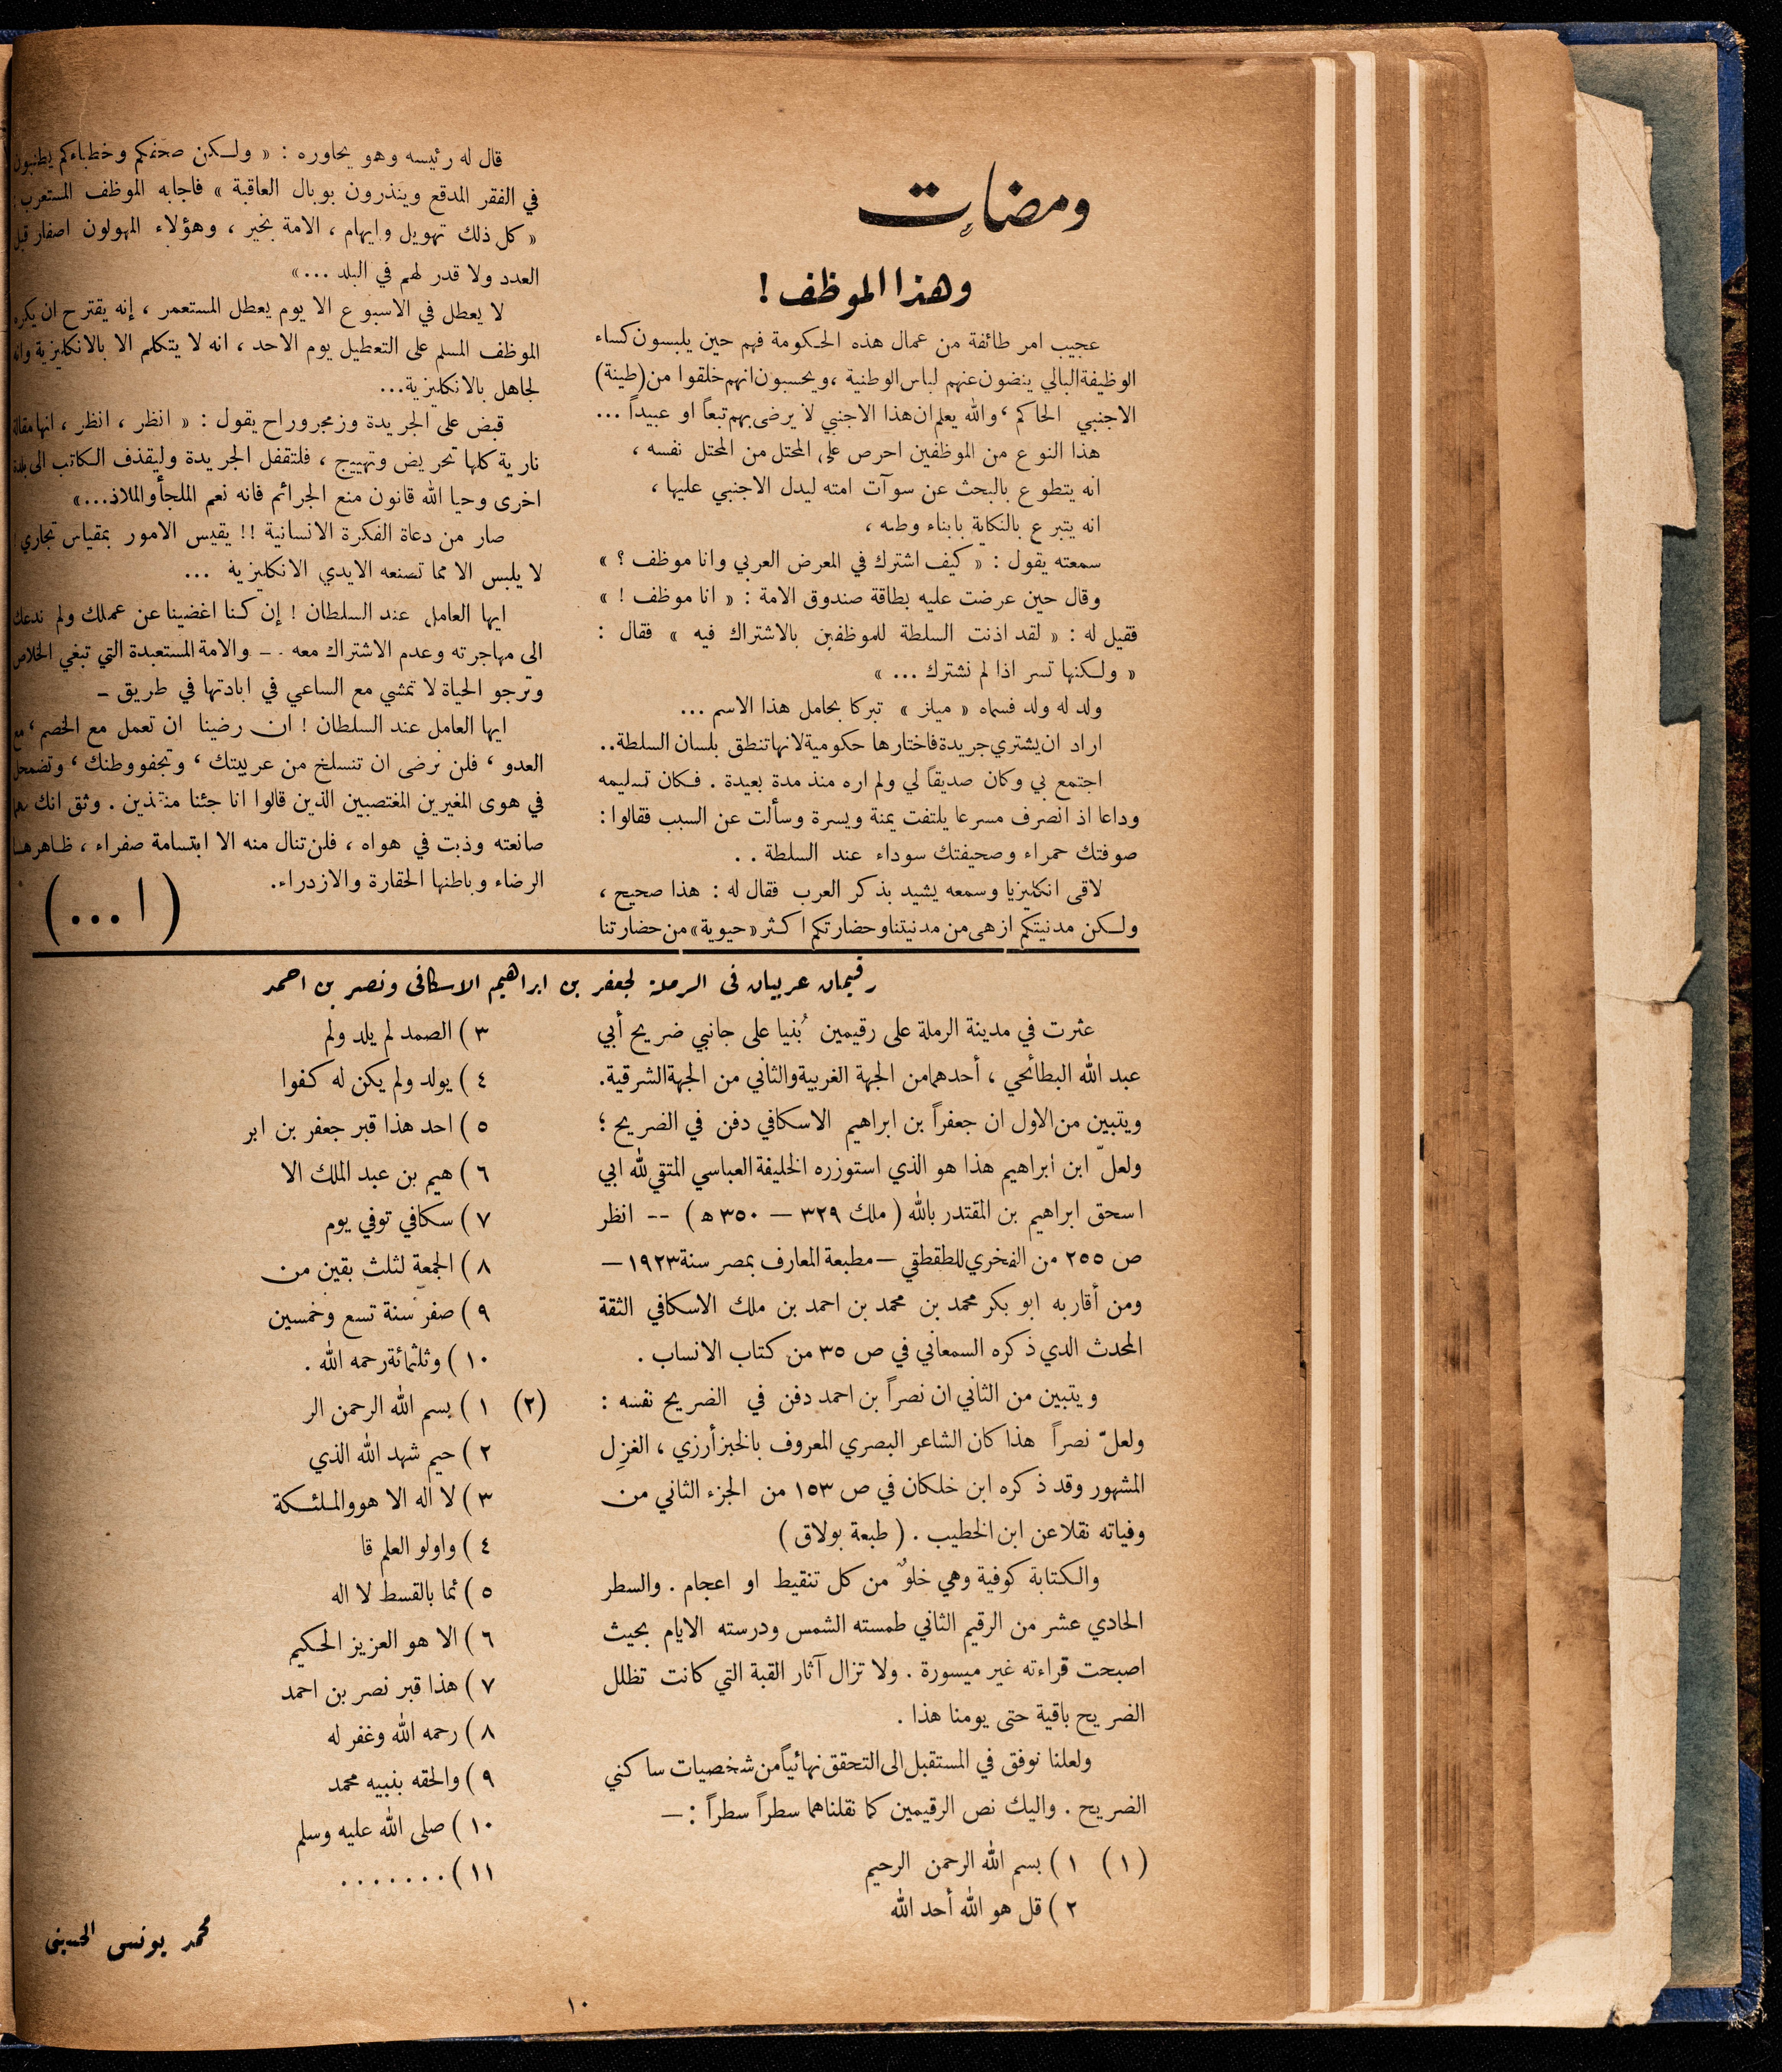 ومضات
وهذا الموظف !
عجيب امر طائفة من عمال هذه الحكومة فهم حين يلبسون كساء
الوظيفة البالي ينضون عنهم لباس الوطنية ، ويحسبون انهم خلقوا من (طينة)
الاجنبي الحاكم ، والله يعلم ان هذا الاجنبي لا يرضى بهم تبعاً او عبيداً ...
هذا النوع من الموظفين احرص على المحتل من المحتل نفسه ،
انه يتطوع بالبحث عن سوآت امته ليدل الاجنبي عليها ،
انه يتبرع بالنكاية بابناء وطنه ،
سمعته يقول : « كيف اشترك في المعرض العربي وانا موظف ؟ »
وقال حين عرضت عليه بطاقة صندوق الامة : « انا موظف ! »
فقيل له : « لقد اذنت السلطة للموظفين بالاشتراك فيه » فقال :
« ولكنها تسر اذا لم نشترك ... »
ولد له ولد فسماه « ميلز » تبركا بحامل هذا الاسم ...
اراد ان يشتري جريدة فاختارها حكومية لانها تنطق بلسان السلطة ..
اجتمع بي وكان صديقاً لي ولم اره منذ مدة بعيدة . فكان تسليمه
وداعا اذ انصرف مسرعا يلتفت يمنة ويسرة وسألت عن السبب فقالوا :
صوفتك حمراء وصحيفتك سوداء عند السلطة . .
لاقى انكليزيا وسمعه يشيد بذكر العرب فقال له : هذا صحيح ،
ولكن مدنيتكم ازهى من مدنيتنا وحضارتكم اكثر « حيوية » من حضارتنا
قال له رئيسه وهو يحاوره : « ولكن صحفكم وخطباءكم يطنبون
في الفقر المدقع وينذرون بوبال العاقبة » فاجابه الموظف المستعرب :
« كل ذلك تهويل وايهام ، الامة بخير ، وهؤلاء المهولون اصفار قبل
العدد ولا قدر لهم في البلد ... »
لا يعطل في الاسبوع الا يوم يعطل المستعمر ، إنه يقترح ان يكره
الموظف المسلم على التعطيل يوم الاحد ، انه لا يتكلم الا بالانكليزية وانه
لجاهل بالانكليزية ...
قبض على الجريدة وزمجر وراح يقول : « انظر ، انظر ، انها مقالة
نارية كلها تحريض وتهييج ، فلتقفل الجريدة وليقذف الكاتب الى بلدة
اخرى وحيا الله قانون منع الجرائم فانه نعم الملجأ والملاذ ... »
صار من دعاة الفكرة الانسانية !! يقيس الامور بمقياس تجاري !
لا يلبس الا مما تصنعه الايدي الانكليزية ...
ايها العامل عند السلطان ! إن كنا اغضينا عن عملك ولم ندعك
الى مهاجرته وعدم الاشتراك معه - والامة المستعبدة التي تبغي الخلاص
وترجو الحياة لا تمشي مع الساعي في ابادتها في طريق -
ايها العامل عند السلطان ! ان رضينا ان تعمل مع الخصم ، مع
العدو ، فلن نرضى ان تنسلخ من عربيتك ، وتجفو وطنك ، وتضمحل
في هوى المغيرين المغتصبين الذين قالوا انا جئنا منقذين . وثق انك مهما
صانعته وذبت في هواه ، فلن تنال منه الا ابتسامة صفراء ، ظاهرها
الرضاء وباطنها الحقارة والازدراء .
( ا ... )
رقيمان عربيان في الرملة لجعفر بن ابراهيم الاسكافي ونصر بن احمد
عثرت في مدينة الرملة على رقيمين بُنيا على جانبي ضريح أبي
عبد الله البطائحي ، أحدهما من الجهة الغربية والثاني من الجهة الشرقية .
ويتبين من الاول ان جعفراً بن ابراهيم الاسكافي دفن في الضريح ؛
ولعلّ ابن ابراهيم هذا هو الذي استوزره الخليفة العباسي المتقي لله ابي
اسحق ابراهيم بن المقتدر بالله ( ملك ٣٢٩ — ٣٥٠ ه ) -- انظر
ص ٢٥٥ من الفخري للطقطقي — مطبعة المعارف بمصر سنة ١٩٢٣ —
ومن أقاربه ابو بكر محمد بن محمد بن احمد بن ملك الاسكافي الثقة
المحدث الدي ذكره السمعاني في ص ٣٥ من كتاب الانساب .
ويتبين من الثاني ان نصراً بن احمد دفن في الضريح نفسه :
ولعلّ نصراً هذا كان الشاعر البصري المعروف بالخبز أرزي ، الغزِل
المشهور وقد ذكره ابن خلكان في ص ١٥٣ من الجزء الثاني من
وفياته نقلا عن ابن الخطيب . ( طبعة بولاق )
والكتابة كوفية وهي خلوٌ من كل تنقيط او اعجام . والسطر
الحادي عشر من الرقيم الثاني طمسته الشمس ودرسته الايام بحيث
اصبحت قراءته غير ميسورة . ولا تزال آثار القبة التي كانت تظلل
الضريح باقية حتى يومنا هذا .
ولعلنا نوفق في المستقبل الى التحقق نهائياً من شخصيات ساكني
الضريح . واليك نص الرقيمين كما نقلناهما سطراً سطراً : —
(١) ١ ) بسم الله الرحمن الرحيم
٢ ) قل هو الله أحد الله
٣ ) الصمد لم يلد ولم
٤ ) يولد ولم يكن له كفوا
٥ ) احد هذا قبر جعفر بن ابر
٦ ) هيم بن عبد الملك الا
٧ ) سكافي توفي يوم
٨ ) الجمعة لثلث بقين من
٩ ) صفر سنة تسع وخمسين
١٠ ) وثلثمائة رحمه الله .
(٢) ١ ) بسم الله الرحمن الر
٢ ) حيم شهد الله الذي
٣ ) لا اله الا هو والملئكة
٤ ) واولو العلم قا
٥ ) ئما بالقسط لا اله
٦ ) الا هو العزيز الحكيم
٧ ) هذا قبر نصر بن احمد
٨ ) رحمه الله وغفر له
٩ ) والحقه بنبيه محمد
١٠ ) صلى الله عليه وسلم
١١ ) . . . . . . .
محمد يونس الحسيني
١٠